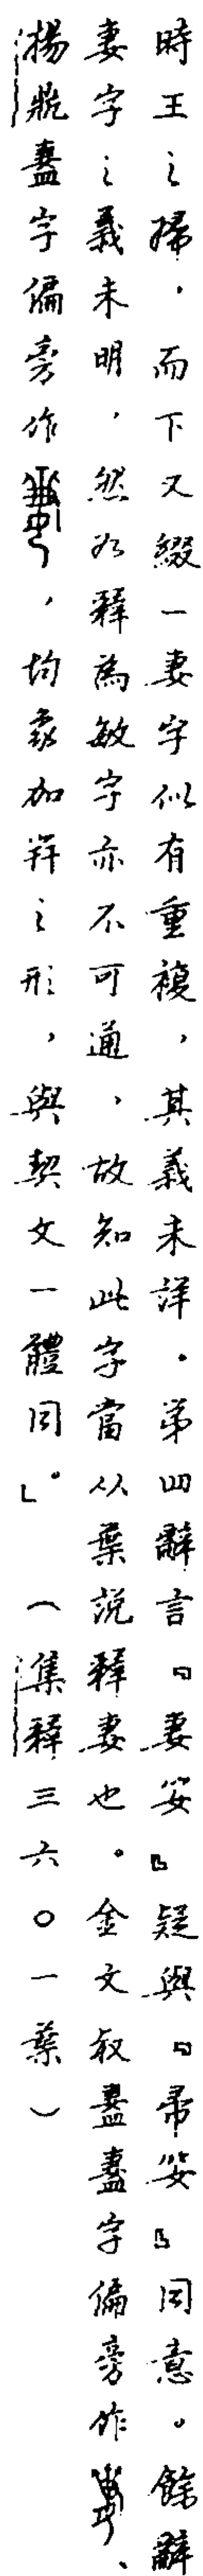 時王之婦，而下又綴一妻字似有重複，其義未詳。第四辭言『妻妟』疑與『帚妟』同意。餘辭
妻字之義未明，然如釋為敏字亦不可通，故知此字當从葉說釋妻也。金文叔𧗕𧗕字偏旁作、
揚鼎𧗕字偏旁作，均象加笄之形，與契文一體同。」（集釋三六〇一葉）